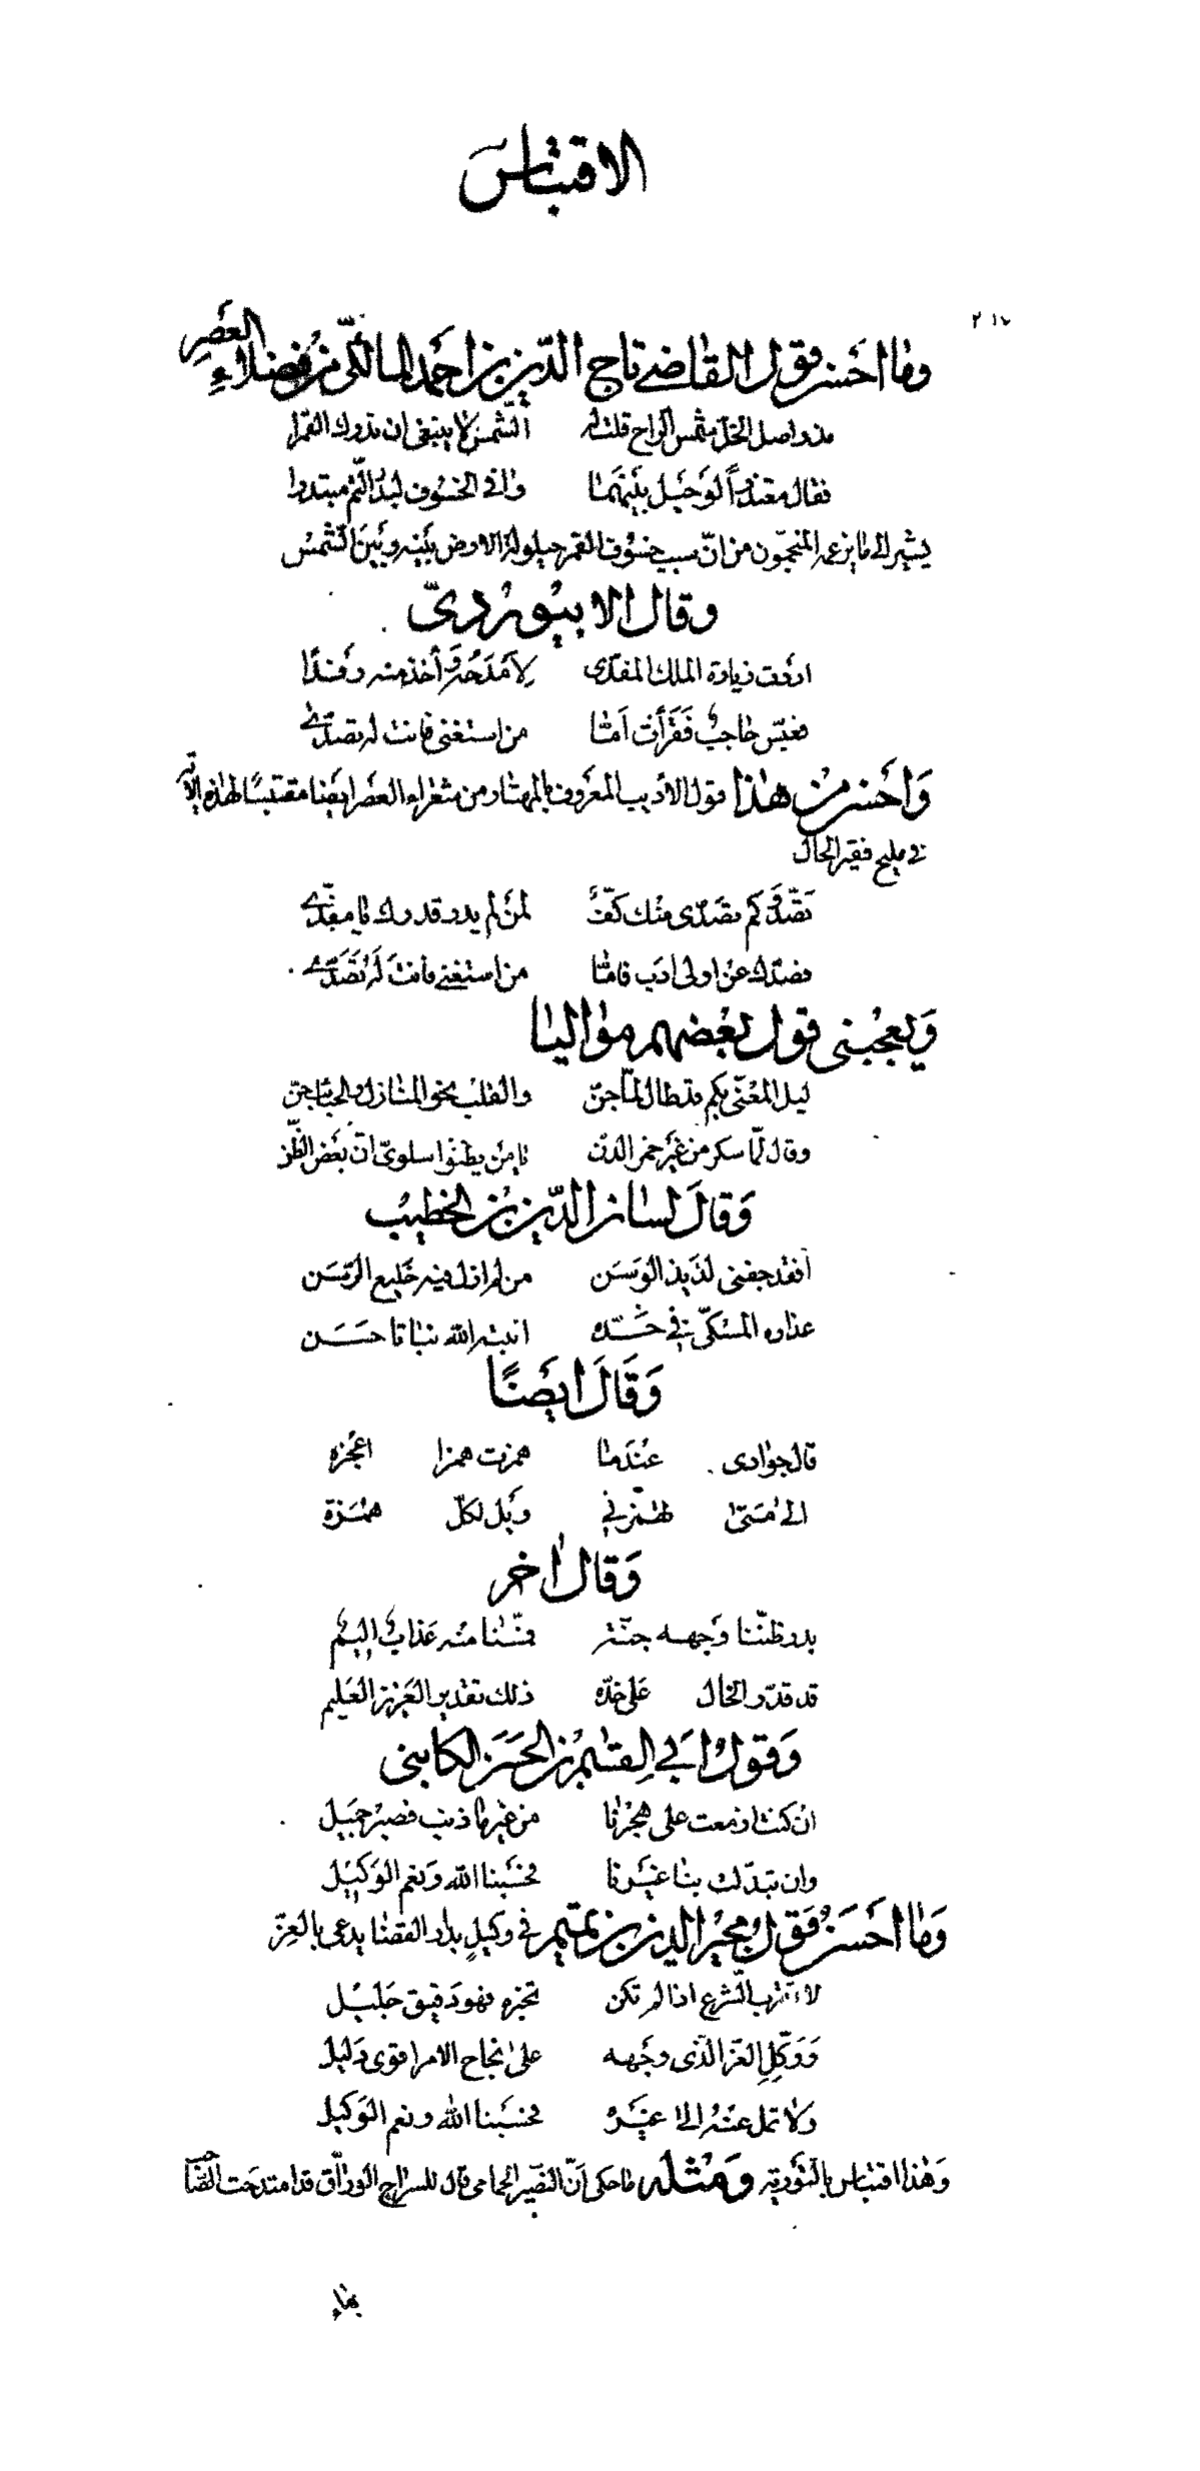 الاقتباس
٢١٧
وما احسن قول القاضي تاج الدّين بن احمد المالكّي من فضلاء العصر
مذ واصل الخلّ شمس الراح قلت له الشّمس لا ينبغي ان تدرك القمرا
فقال معتذرًا لو حيل بينهما وافى الخسوف لبدر التّم مبتدرا
يشير الى ما يزعمه المنجّمون من انّ سبب خسوف القمر حيلولة الارض بينه وبين الشمس
وقال الابيوردىّ
اردت زيارة الملك المفدّى لامدحه وأخذ منه رفدًا
فعبّس حاجبٌ فقرأت امّا من استغنى فانت له تصدّى
وَاحسن من هذا قول الأديب المعروف بالمهتار من شعراء العصر ايضا مقتبسًا لهذه الاية
في مليح فقير الحال
تصّدق كم تصدّى منك كفّ لمن لم يدر قدرك يا مفدّى
فصدّك عن اولى ادب فامّا من استغنى فانت له تصَدّى
وَيعجبنى قول بعضهم مواليا
ليل المعنّى بكم قد طال لمّا جنّ والقلب نحو المنازل والحبائب حنّ
وقال لمّا سكر من غير خمر الدنّ يا من يظنوا سلوىّ انّ بعض الظّن
وَقالَ لسان الدّين بن الخطيب
أفقد جفنى لذيذ الوسَن من لم ازل فيه خليع الرّسَن
عذاره المسكّي في خَدّه انبته الله نباتا حَسَن
وَقَالَ ايضًا
قال جوادى عندما همزت همزا اعجزه
الى مَتى تهمزني ويل لكلّ همَزة
وَقال اٰخر
بدر ظننّا وجهه جنّة فمسّنا منه عذاب اليم
قد قدّر الخال على خدّه ذلك تقدير العزيز العَليم
وَقول ابي القسم بن الحسَن الكاتبى
ان كنت ازمعت على هجرنا من غير ما ذنب فصبر جميل
وان تبدّلت بنا غيرنا فحسبنا الله ونعم الوَكيل
وَما احسَن قول مجير الدين بن تميم في وكيل بدار القضا يدعى بالعزّ
لا تقرب الشّرع اذا لم تكن تخبره فهو دقيق جليل
وَوَكّلِ العزّ الذى وجهه على نجاح الامر اقوى دَليل
وَلا تمل عنه الى غيره فحسبنا الله ونعم الوَكيل
وَهذا اقتباس بالتّورية وَمثله ما حكى اَنّ النّصير الحمامى قال للسراج الورّاق قد امتدحت القضا
بها